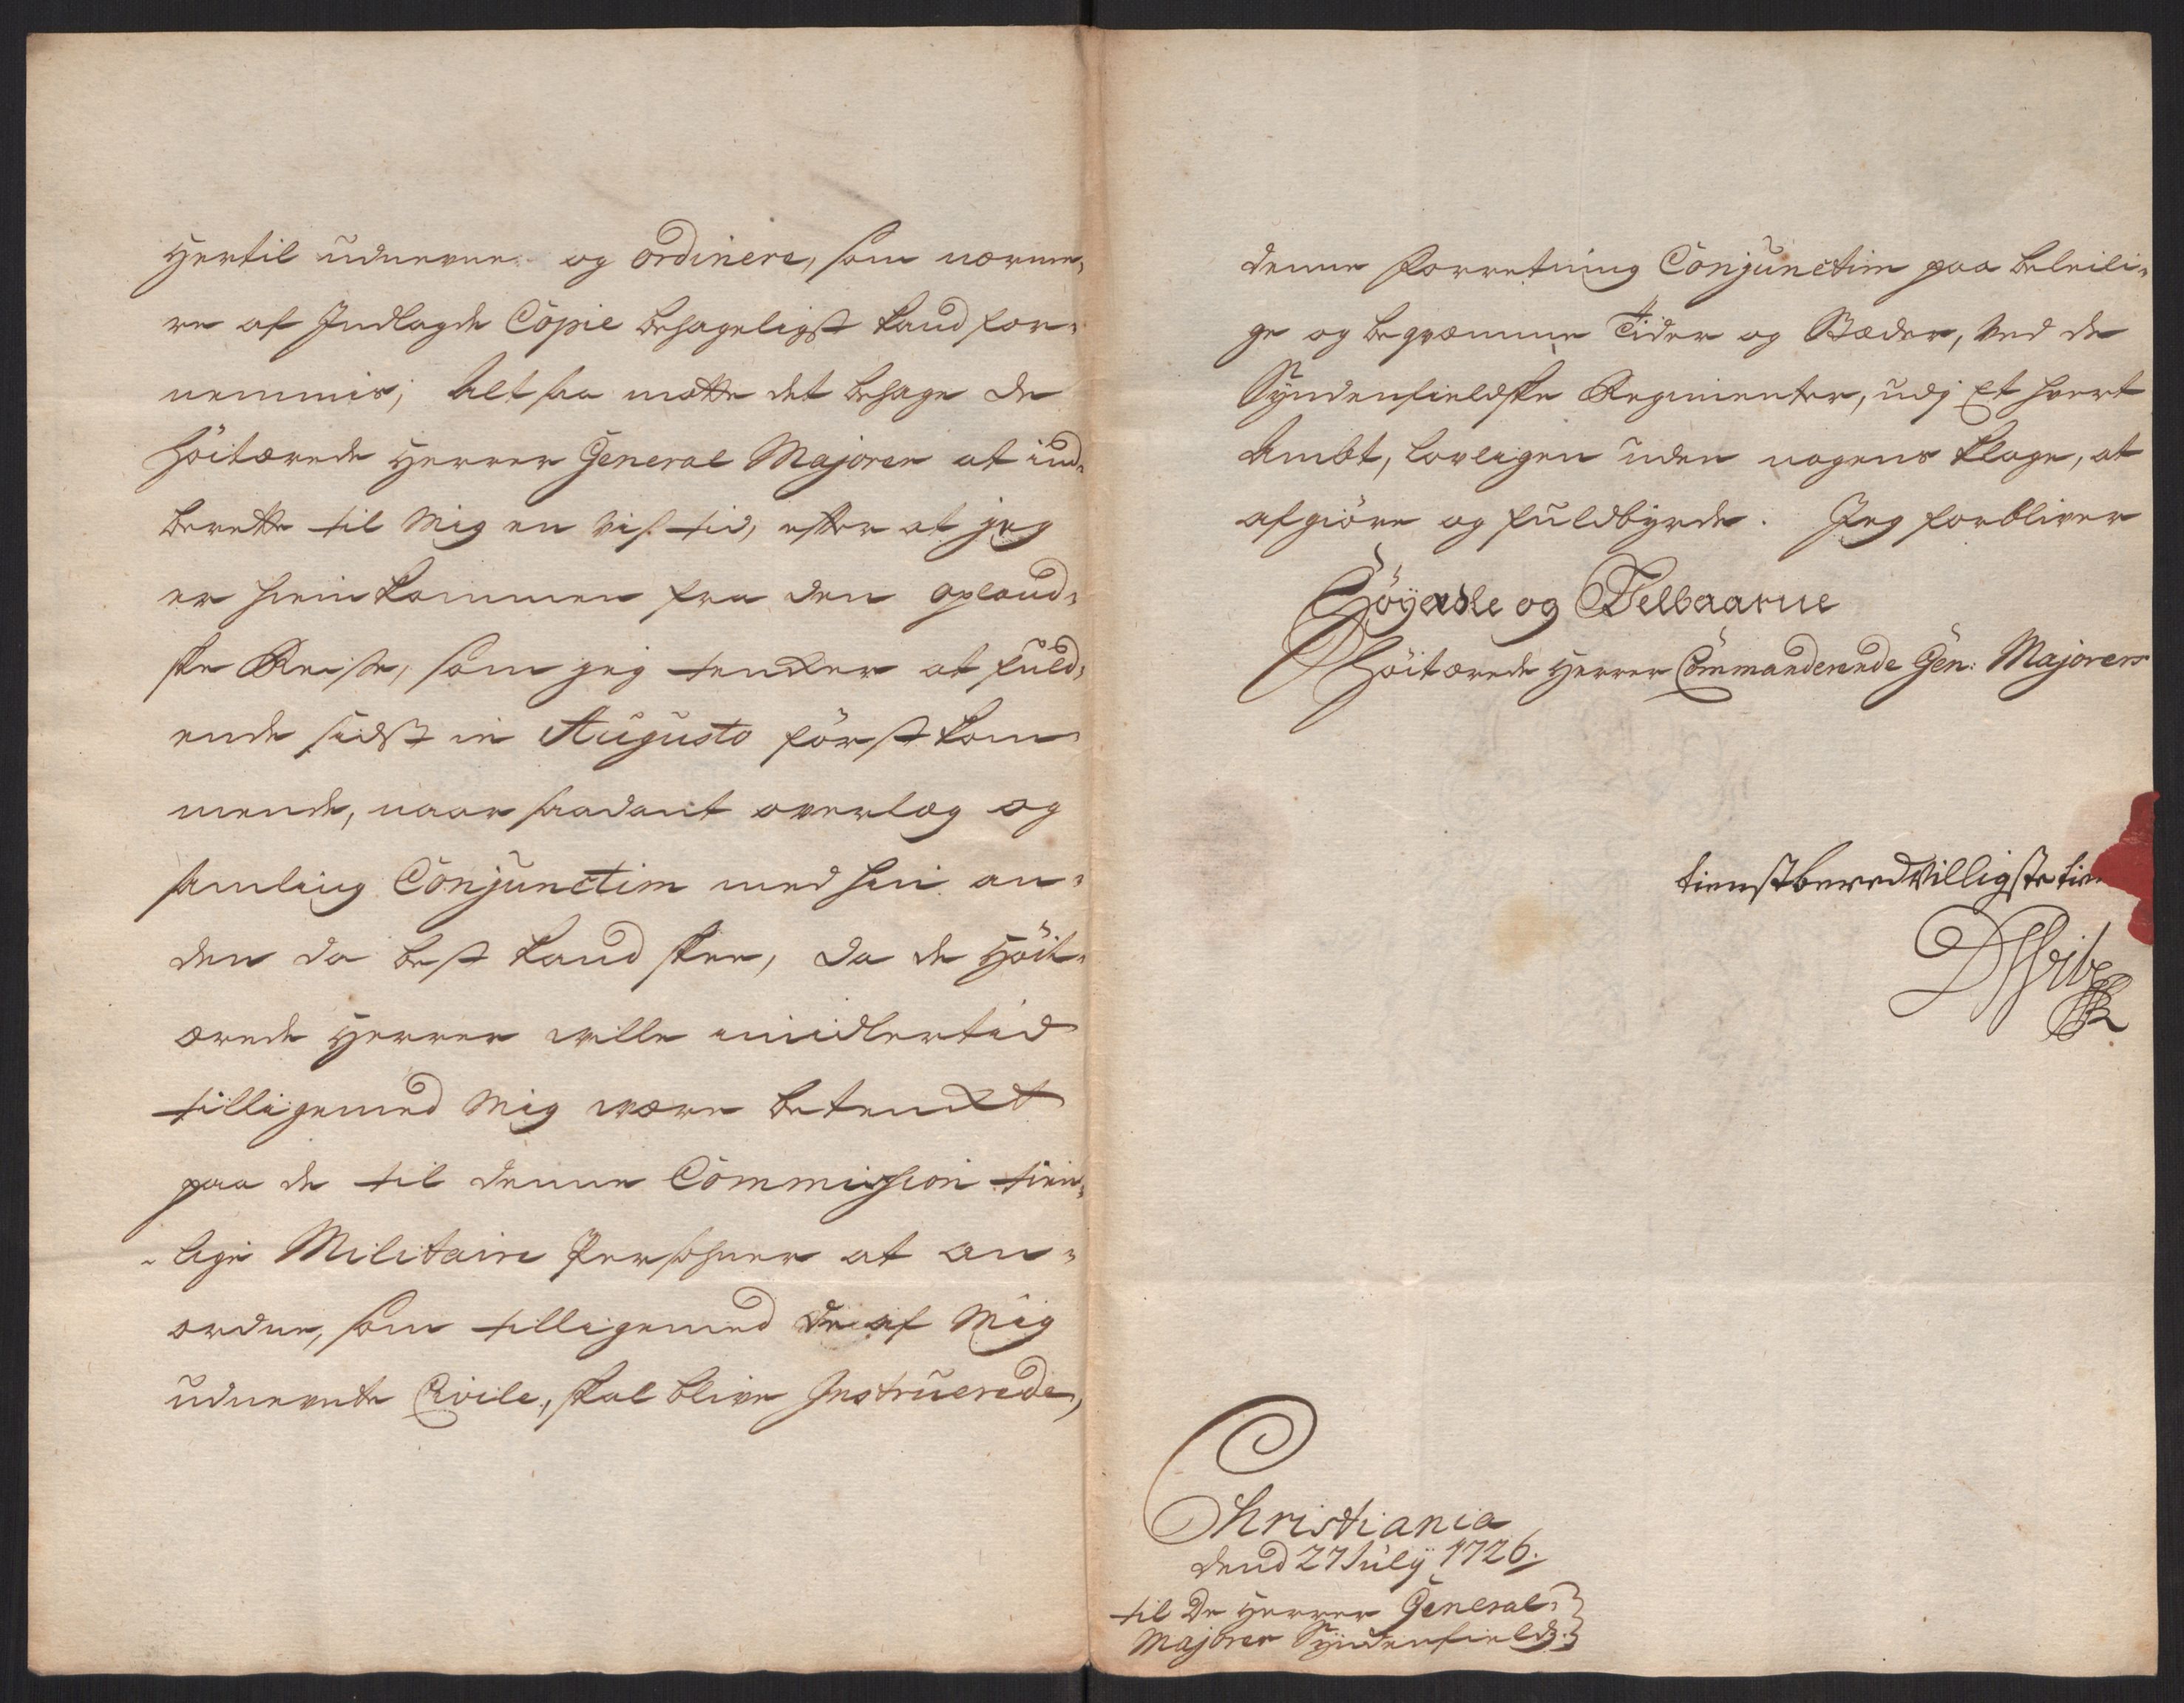 Hertil udnevne og ordinere, som nærme-
re af Indlagde Copie behageligst kand for-
nemmis; Alt saa motte det behage de
höitærede Herrer General Majorer at ind-
berette til Mig en vis tid, efter at jeg
er hiemkommen fra den opland-
ske Reise, som jeg tencker at fuld-
ende sidst in Augusto först kom-
mende, naar saadant overlæg og
samling Conjunctim med hin an-
den da best kand skee, da de Höit-
ærede Herrer ville imidlertid
tilligemed Mig være betenckt
paa de til denne Commission tien-
lige Militaire Persohner at an-
ordne, som tilligemed de af Mig
udnevnte Civile, skal blive Instruerede,
denne Forretning Conjunctim paa beleili-
ge og beqvæmme Tider og Stæder, ved de
Syndenfieldske Regimenter, udj Et hvert
Ambt, lovligen uden nogens klage, at
afgiöre og fuldbyrde. Jeg forbliver
Höyædle og Velbaarne
Höitærede Herrer Commanderende Gen: Majorers
tienstberedvilligste
D Vibe
Christiania
dend 27 July 1726.
til De Herrer General-
Majorer Syndenfields.